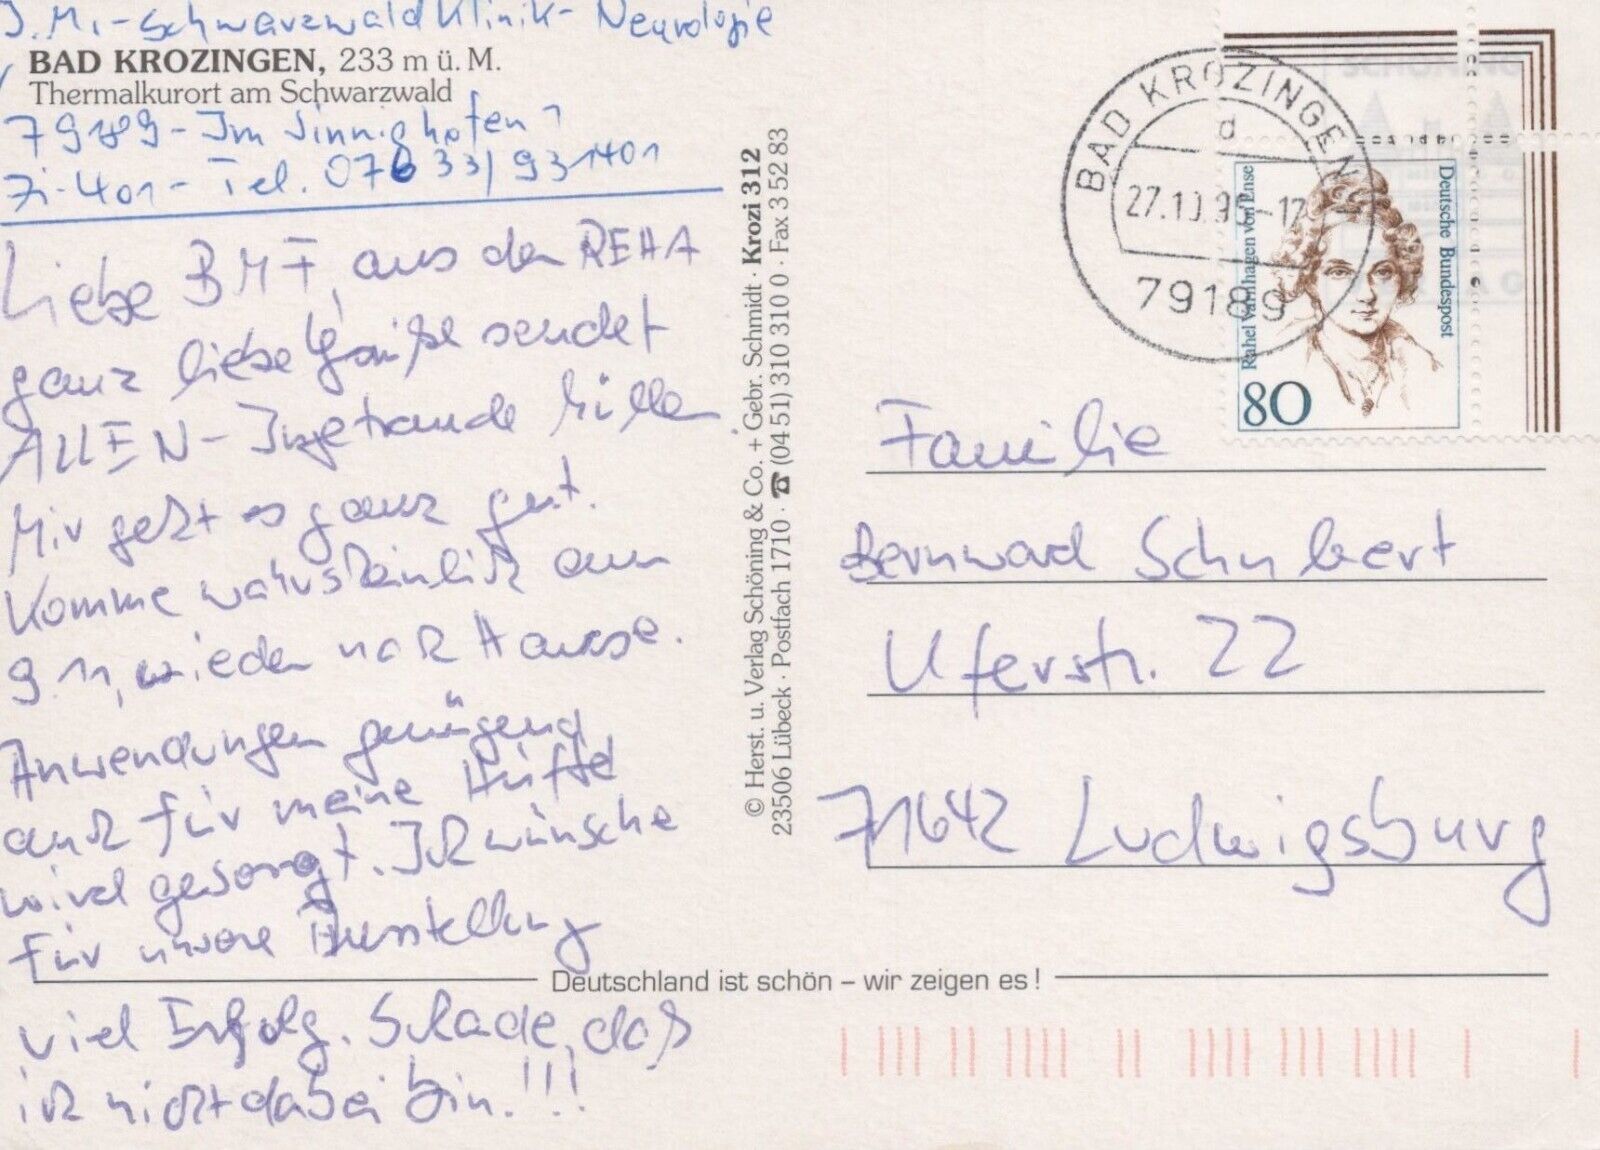 I. M. - Schwarzwald Klinik - Neurologie
BAD KROZINGEN, 233 m ü. M.
Thermalkurort am Schwarzwald
79189 - Im Sinnighofen 1
Zi - 401 - Tel. 07633/931401
Liebe BMF, aus der REHA
ganz liebe Grüße sendet
ALLEN - Ingetraude
Mir geht es ganz gut.
Komme wahrscheinlich am
9.11, wieder nach Hause.
Anwendungen genügend
auch für meine Hüfte
wird gesorgt. Ich wünsche
für unsere Ausstellung
viel Erfolg. Schade, daß
ich nicht dabei bin.!!!
© Herst. u. Verlag Schöning & Co. + Gebr. Schmidt · Krozi 312
23506 Lübeck · Postfach 1710 · ☎ (04 51) 310 310 0 · Fax 3 52 83
BAD KROZINGEN
d
79189
Deutsche Bundespost
Rahel Varnhagen von Ense
80
Familie
Bernward Schubert
Uferstr. 22
71642 Ludwigsburg
Deutschland ist schön – wir zeigen es!